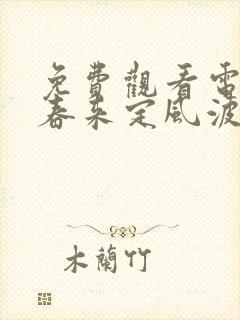 免費觀看電
春来定風波
木蘭竹